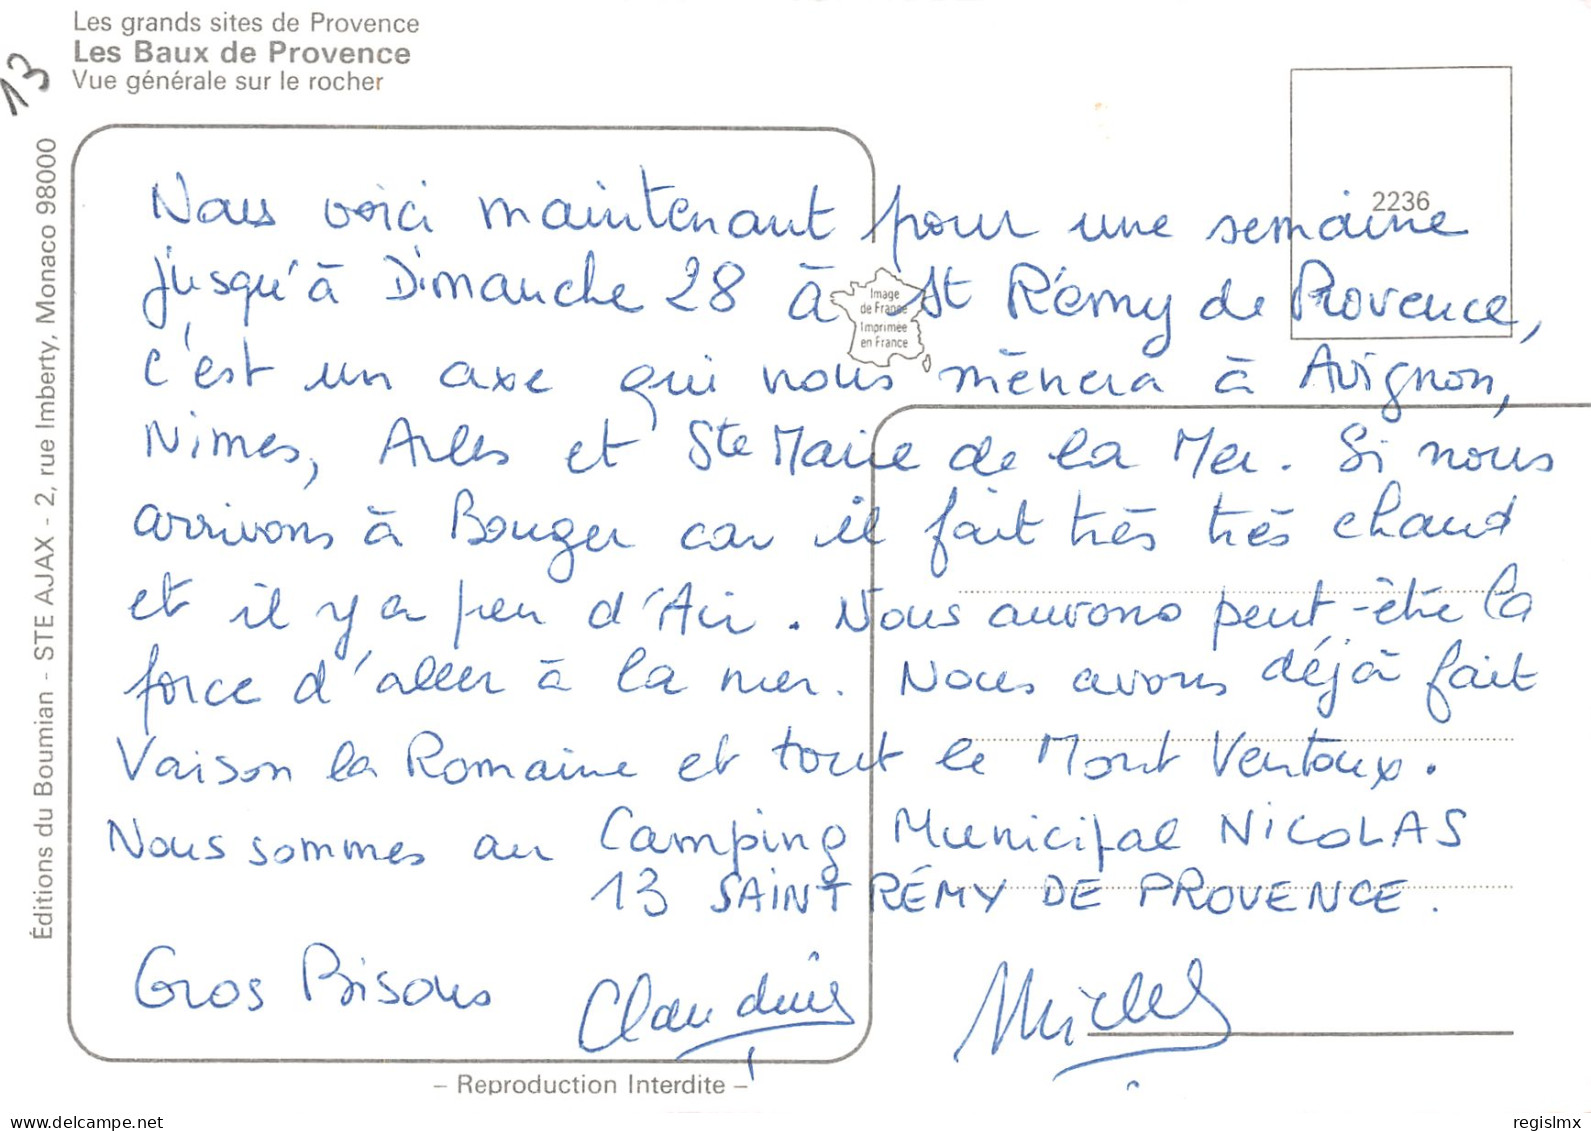 Les grands sites de Provence
Les Baux de Provence
Vue générale sur le rocher
13
2236
Nous voici maintenant pour une semaine
jusqu'à Dimanche 28 à St Rémy de Provence,
c'est un axe qui nous mènera à Avignon,
Nimes, Arles et Ste Marie de la Mer. Si nous
arrivons à Bouger car il fait très très chaud
et il y a peu d'Air. Nous aurons peut-être la
force d'aller à la mer. Nous avons déjà fait
Vaison la Romaine et tout le Mont Ventoux.
Nous sommes au Camping Municipal NICOLAS
13 SAINT RÉMY DE PROVENCE.
Gros Bisous Claudine Michel
Image
de France
Imprimée
en France
Éditions du Boumian - STE AJAX - 2, rue Imberty, Monaco 98000
– Reproduction Interdite –
www.delcampe.net
regislmx